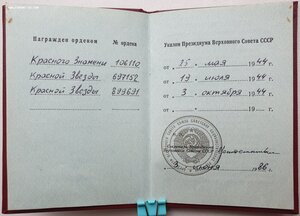 Награжден орденом
№ ордена
Красного Знамени 106110
Красной Звезды 697152
Красной Звезды 899691
Указом Президиума Верховного Совета СССР
от 25 мая 1944
от 19 июля 1944
от 3 октября 1944
от 19
Верховного Совета СССР
1986